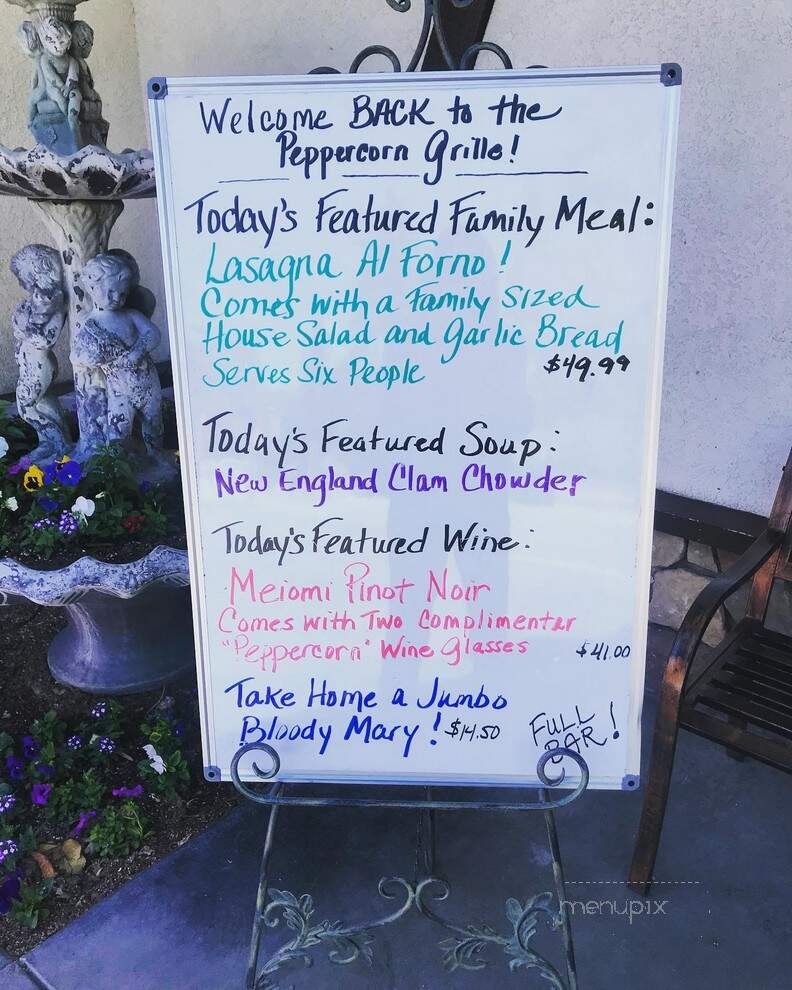 Welcome BACK to the
Peppercorn Grille!
Today's Featured Family Meal:
Lasagna Al Forno!
Comes with a Family Sized
House Salad and Garlic Bread
Serves Six People $49.99
Today's Featured Soup:
New England Clam Chowder
Today's Featured Wine:
Meiomi Pinot Noir
Comes with Two Complimenter
"Peppercorn" Wine Glasses $41.00
Take Home a Jumbo
Bloody Mary! $14.50
FULL
BAR!
menupix